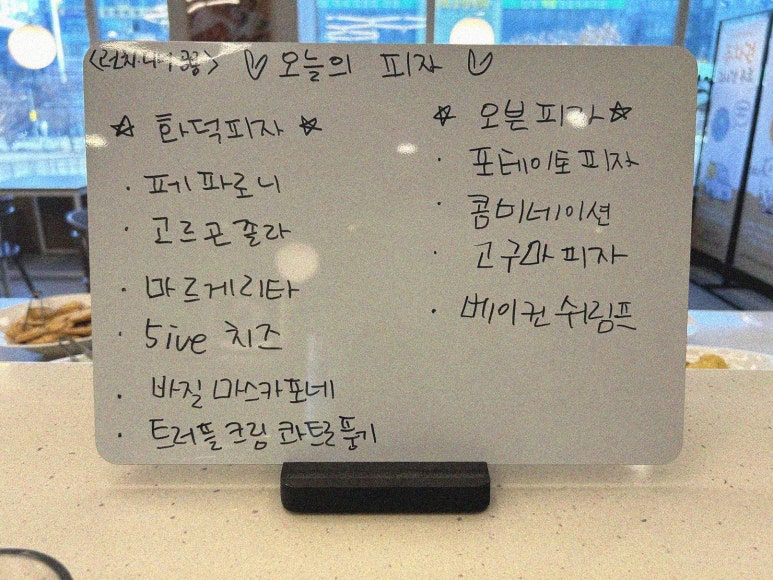 <런치.디너 공통> ♡ 오늘의 피자 ♡
☆ 화덕피자 ☆
· 페페로니
· 고르곤졸라
· 마르게리타
· 5ive 치즈
· 바질 마스카포네
· 트러플크림 콰트로풍기
☆ 오븐피자 ☆
· 포테이토피자
· 콤비네이션
· 고구마피자
· 베이컨쉬림프